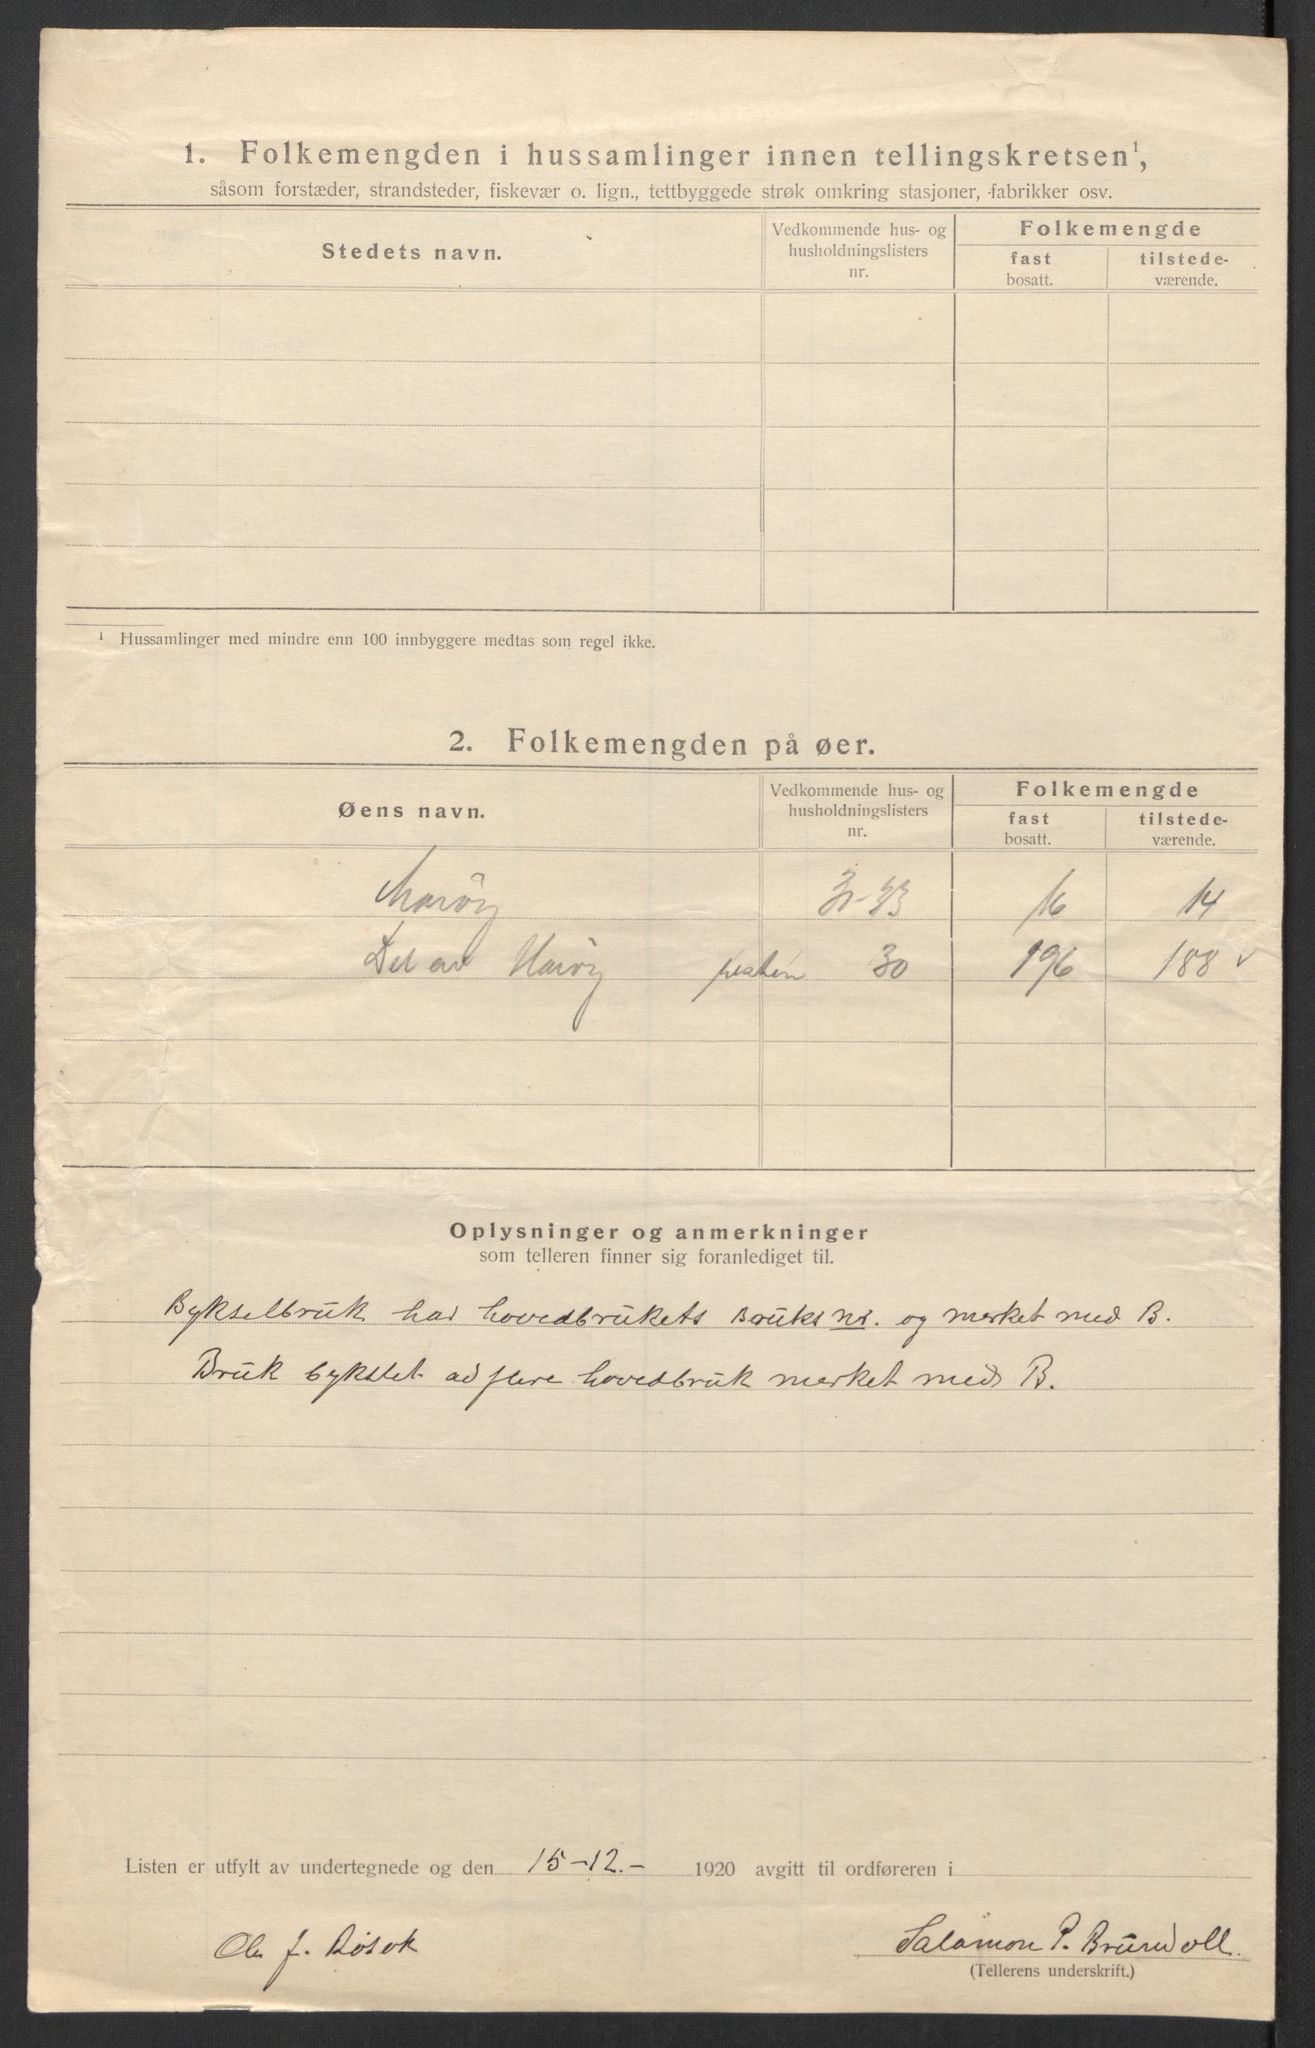 1. Folkemengden i hussamlinger innen tellingskretsen¹,
såsom forstæder, strandsteder, fiskevær o. lign., tettbyggede strøk omkring stasjoner, fabrikker osv.
Stedets navn.
Vedkommende hus- og husholdningslisters nr.
Folkemengde
fast bosatt.
tilstedeværende.
¹ Hussamlinger med mindre enn 100 innbyggere medtas som regel ikke.
2. Folkemengden på øer.
Øens navn.
Vedkommende hus- og husholdningslisters nr.
Folkemengde
fast bosatt.
tilstedeværende.
Maröy 31-33 16 14
Del av Haröy 30 196 188 v
Oplysninger og anmerkninger
som telleren finner sig foranlediget til.
Bykselbruk har hovedbrukets Bruks nr. og merket med B.
Bruk bykslet ad flere hovedbruk merket med B.
Listen er utfylt av undertegnede og den 15-12.- 1920 avgitt til ordføreren i
Ole J. Røsok
Salamon P. Brunvoll.
(Tellerens underskrift.)